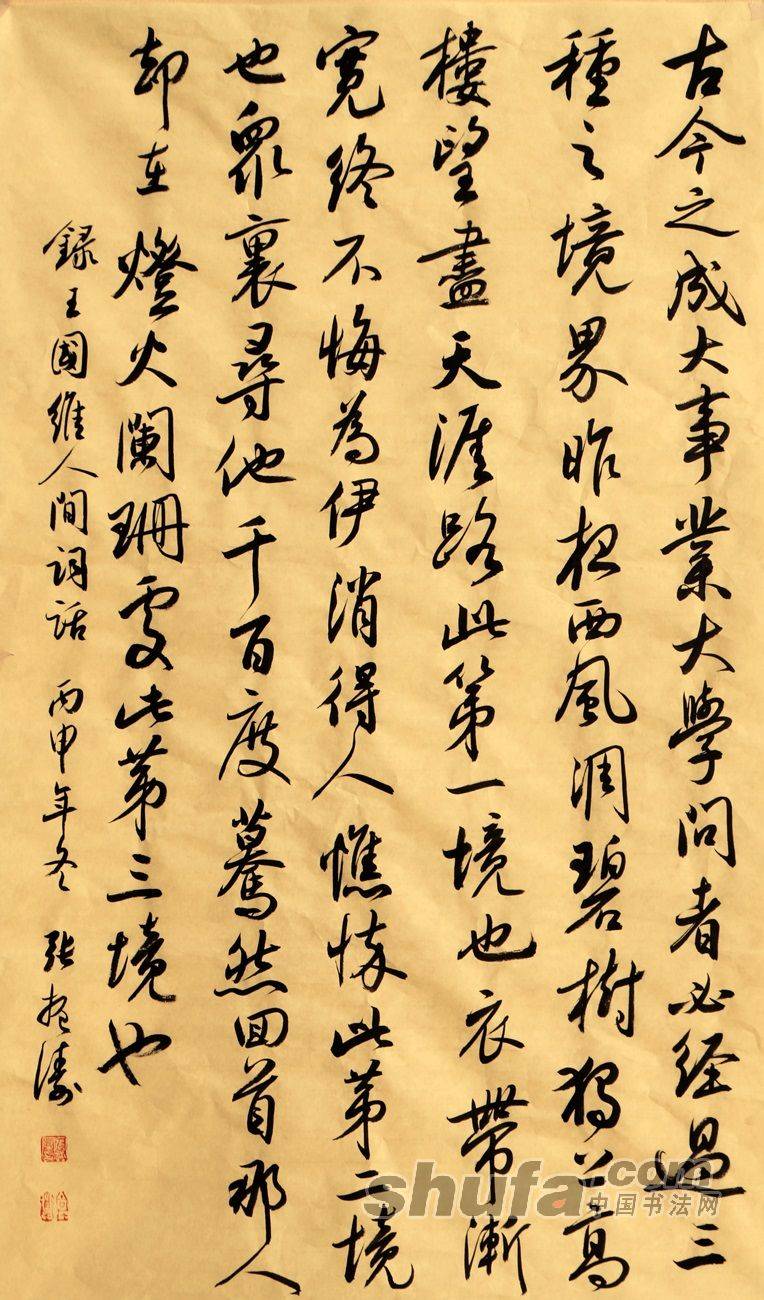 古今之成大事業大學問者必經過三
種之境界昨夜西風凋碧樹獨上高
樓望盡天涯路此第一境也衣帶漸
寬終不悔為伊消得人憔悴此第二境
也眾裏尋他千百度驀然回首那人
却在燈火闌珊處此第三境也
録王國維人間詞話 丙申年冬 張
shufa.com
中国书法网